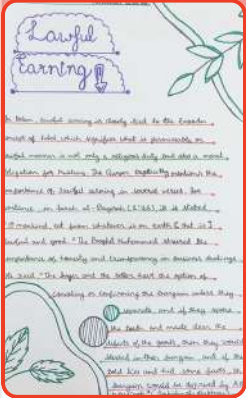 Lawful
Earning
In Islam, lawful earning is closely tied to the broader
concept of halal which signifies what is permissible or
lawful manner is not only a religious duty but also a moral
obligation for Muslims. The Quran explicitly mentions the
importance of lawful earning in several verses. For
instance, in Surah al-Baqarah (2:168), it is stated
"O mankind, eat from whatever is on earth that is
lawful and good." The Prophet Muhammad stressed the
importance of honesty and transparency in business dealings.
He said, "The buyer and the seller have the option of
canceling or confirming the bargain unless they
separate, and if they spoke
the truth and made clear the
defects of the goods, then they would
blessed in their bargain, and if they
told lies and hid some facts, their
bargain would be deprived by Allah